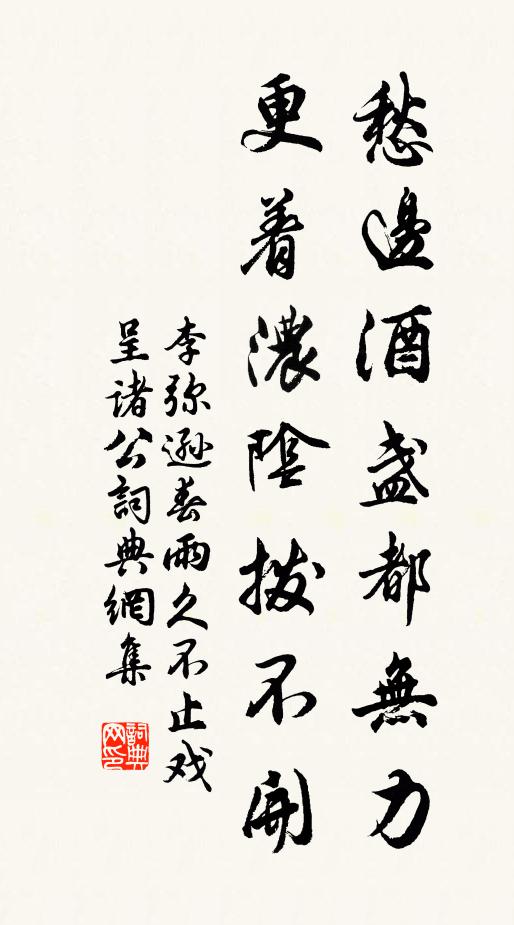 愁邊酒盞都無力
更着濃陰撥不開
李弥遜春雨久不止戏
呈诸公詞典網集
詞典网印